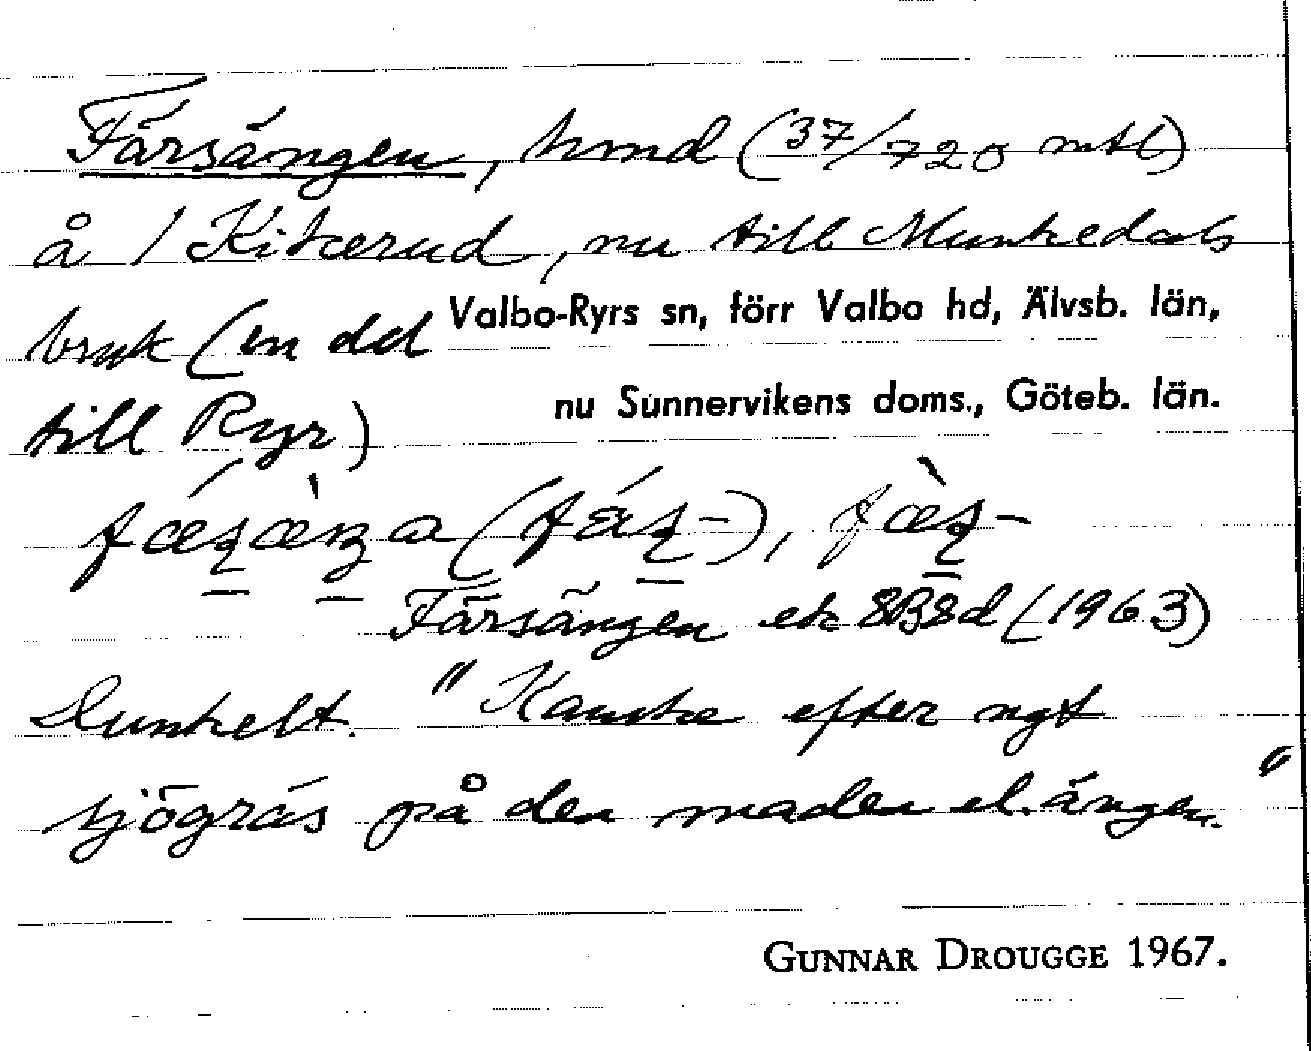 Färsängen, hmd (37/720 mtl)
å 1 Kitserud, nu till Munkedals
bruk (en del
till Ryr)
Valbo-Ryrs sn, förr Valbo hd, Älvsb. län,
nu Sunnervikens doms., Göteb. län.
Färsängen ek 8B8d (1963)
Dunkelt. "Kanske efter ngt
sjögräs på den maden el. ängen."
GUNNAR DROUGGE 1967.